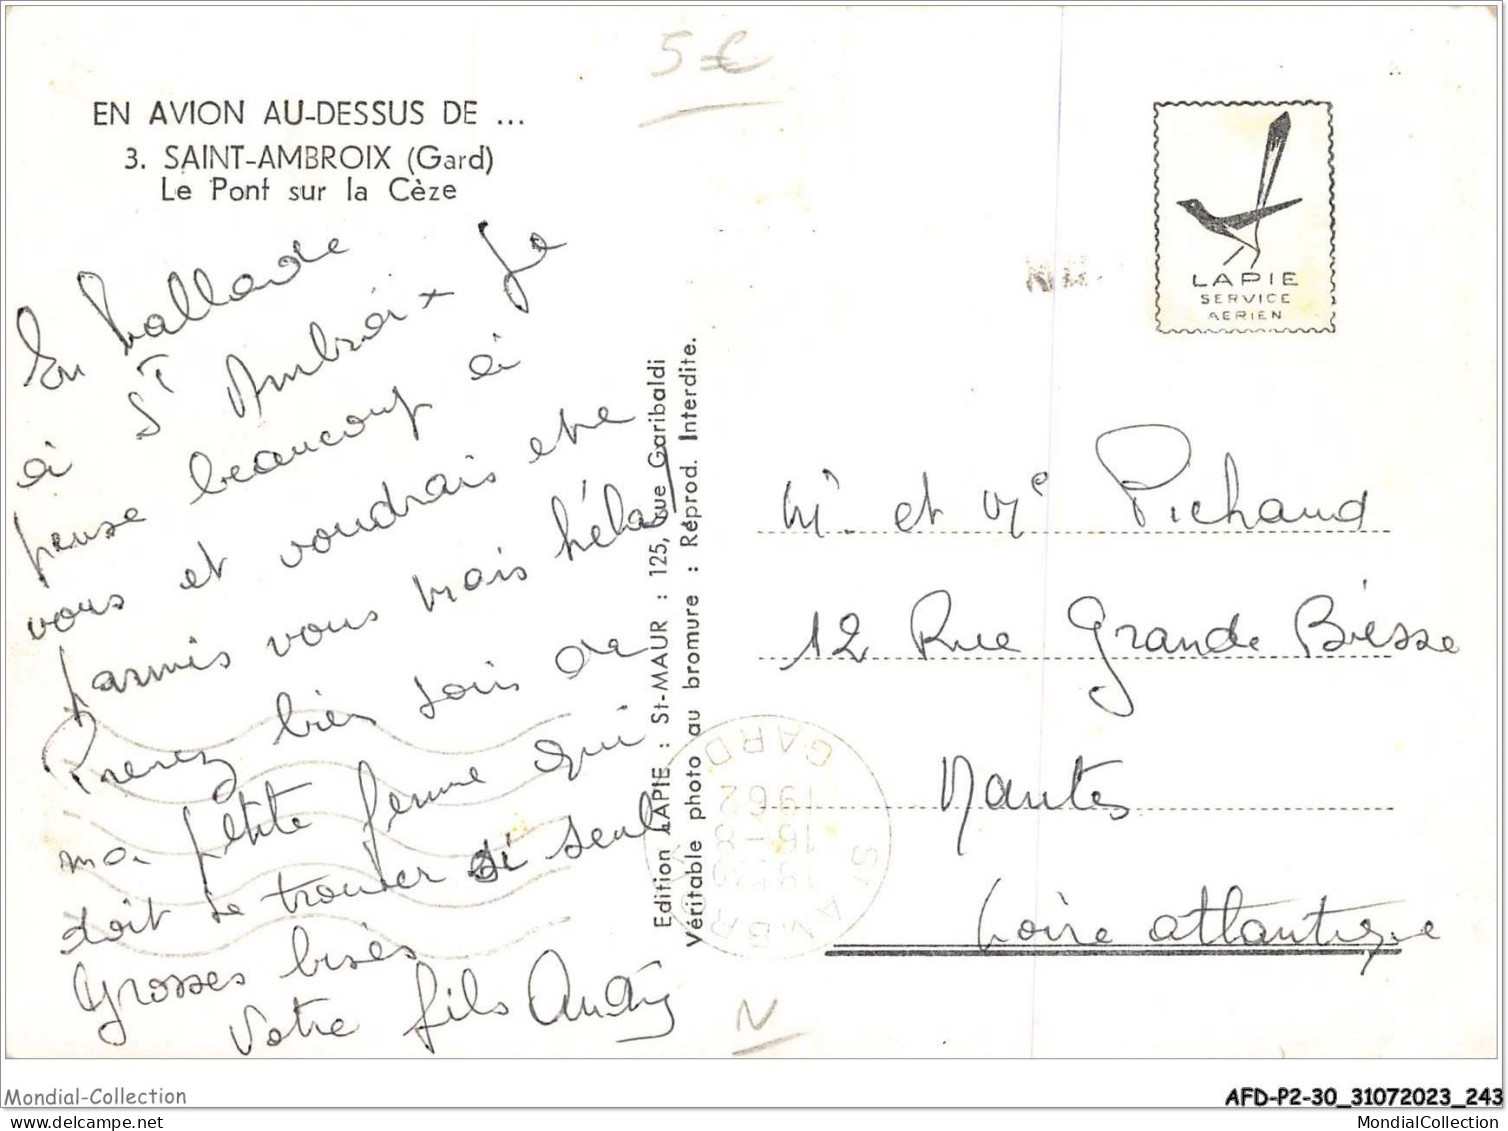 5€
EN AVION AU-DESSUS DE ...
3. SAINT-AMBROIX (Gard)
Le Pont sur la Cèze
En Ballade
à St Ambroix Je
pense beaucoup à
vous et voudrais etre
parmis vous mais hélas
Prenez bien soin de
ma petite femme qui
doit se trouver si seul
Grosses bises
Votre fils
Edition LAPIE : St-MAUR : 125, rue Garibaldi
Véritable photo au bromure : Réprod. Interdite.
LAPIE
SERVICE
AERIEN
M. et Me Pichaud
12 Rue Grande Biesse
Nantes
Loire atlantique
GARD
1962
16-8
19H30
ST AMBROIX
N
Mondial-Collection
AFD-P2-30_31072023_243
mondialcollection
MondialCollection